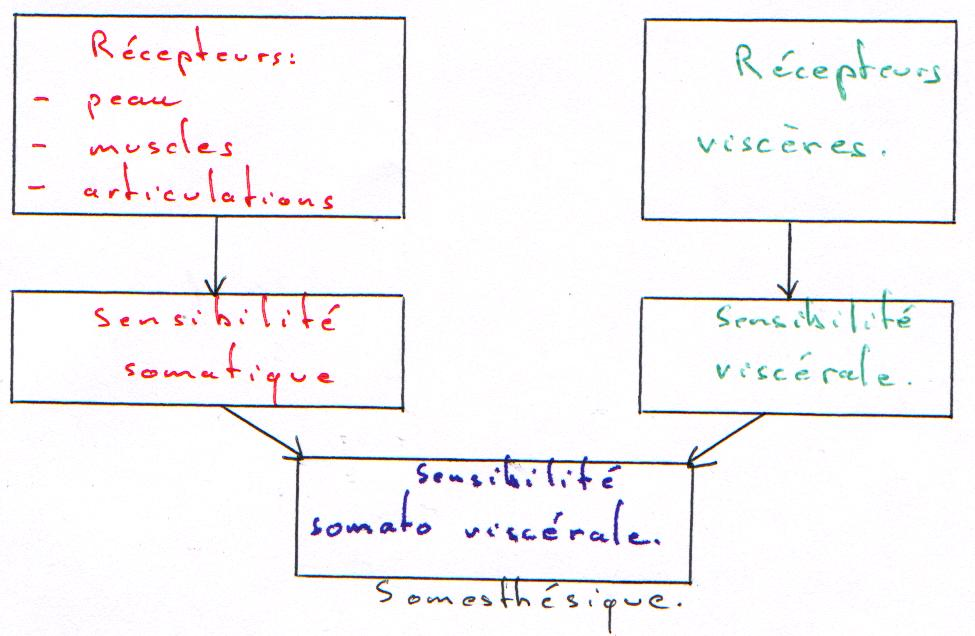 Récepteurs:
- peau
- muscles
- articulations
Récepteurs
viscères.
Sensibilité
somatique
Sensibilité
viscérale.
Sensibilité
somato viscérale.
Somesthésique.